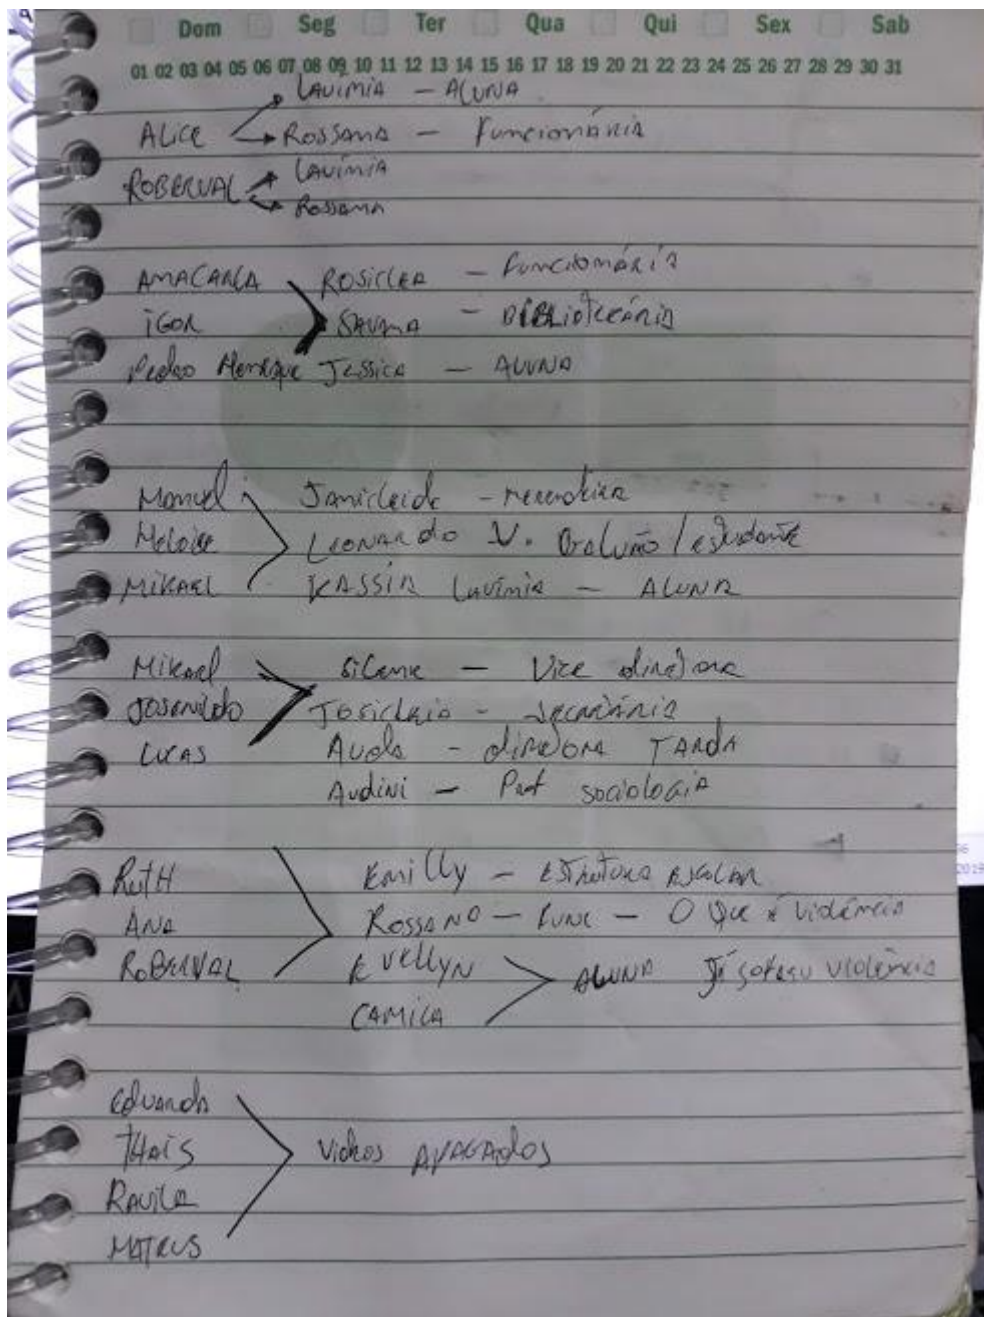 Dom Seg Ter Qua Qui Sex Sab
01 02 03 04 05 06 07 08 09 10 11 12 13 14 15 16 17 18 19 20 21 22 23 24 25 26 27 28 29 30 31
Lavímia - Aluna
Alice Rossana - Funcionária
Roberval Lavímia
Rossana
Anacarla Rosicler - Funcionária
Igor Sauma - Bibliotecária
Pedro Henrique Jessica - Aluna
Manuel Janicleide - merendeira
Heloise Leonardo V. / estudante
Mikael Kassia Lavímia - Aluna
Mikael Silame - Vice diretora
Josenildo Josicleio - secretária
Lucas Auda - diretora Tarde
Audini - Prof sociologia
Ruth Emilly - Estrutura escolar
Ana Rossano - Func - O que é violência
Roberval Evellyn Aluna Já sofreu violência
Camila
Eduarda
Thais Videos apagados
Ravila
Mateus